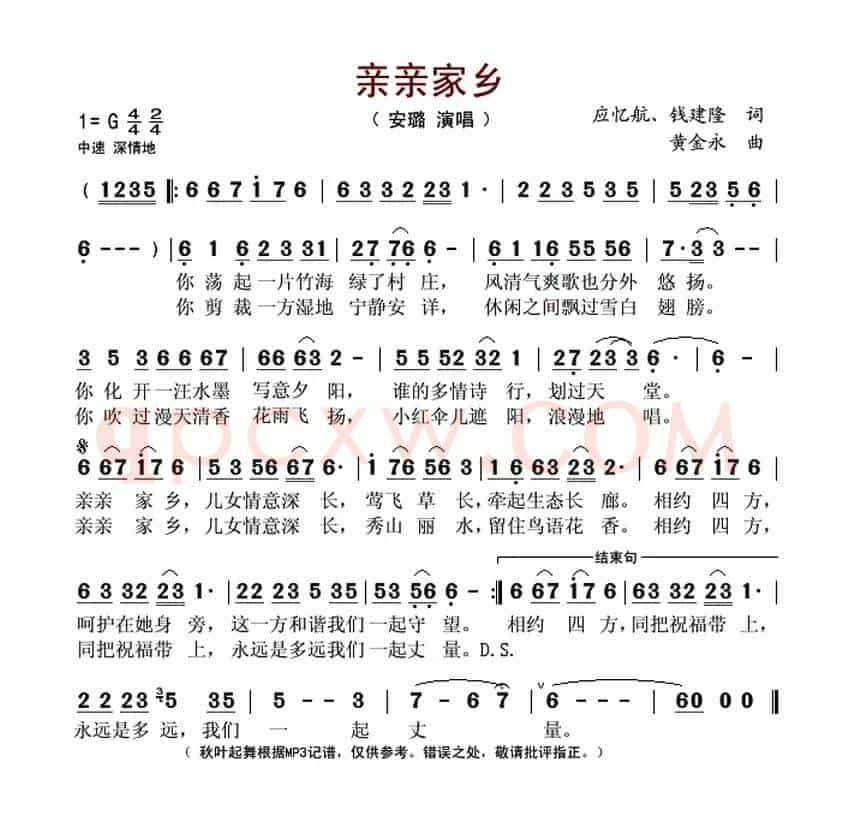 亲亲家乡
1=G 4/4 2/4
（ 安璐 演唱 ）
应忆航、钱建隆 词
中速 深情地
黄金永 曲
( 1235 ‖: 6 6 7 i 7 6 | 6 3 3 2 23 1· | 2 2 3 5 3 5 | 5 23 5 6 |
6 - - - ) | 6 1 6 23 31 | 27 76 6 - | 61 16 55 56 | 7·3 3 - - |
你 荡 起 一片竹海 绿了村 庄， 风清气爽歌也分外 悠扬。
你 剪 裁 一方湿地 宁静安 详， 休闲之间飘过雪白 翅膀。
3 5 3 6 6 67 | 66 63 2 - | 55 52 32 1 | 27 23 3 6 · | 6 - |
你 化 开一汪水墨 写意夕 阳， 谁的多情诗 行，划过天 堂。
你 吹 过漫天清香 花雨飞 扬， 小红伞儿遮 阳，浪漫地 唱。
qpcxw.COM
6 67 i7 6 | 53 56 67 6· | i 76 5 3 | 1 6 63 23 2· | 6 67 i7 6 |
亲亲 家 乡，儿女情意深 长，莺飞 草 长，牵起生态长 廊。相约 四 方，
亲亲 家 乡，儿女情意深 长，秀山 丽 水，留住鸟语花 香。相约 四 方，
结束句
63 32 23 1· | 22 23 5 35 | 53 56 6 - :‖ 6 67 i7 6 | 63 32 23 1· |
呵护在她身 旁，这一方和谐我们一起守 望。 相约 四 方，同把祝福带 上，
同把祝福带 上，永远是多远我们一起丈 量。D.S.
2 2 23 3/5 35 | 5 - - 3 | 7 - 6 7 | V 6 - - - | 60 0 0 ‖
永远是多 远，我们 一 起 丈 量。
（ 秋叶起舞根据MP3记谱，仅供参考。错误之处，敬请批评指正。）